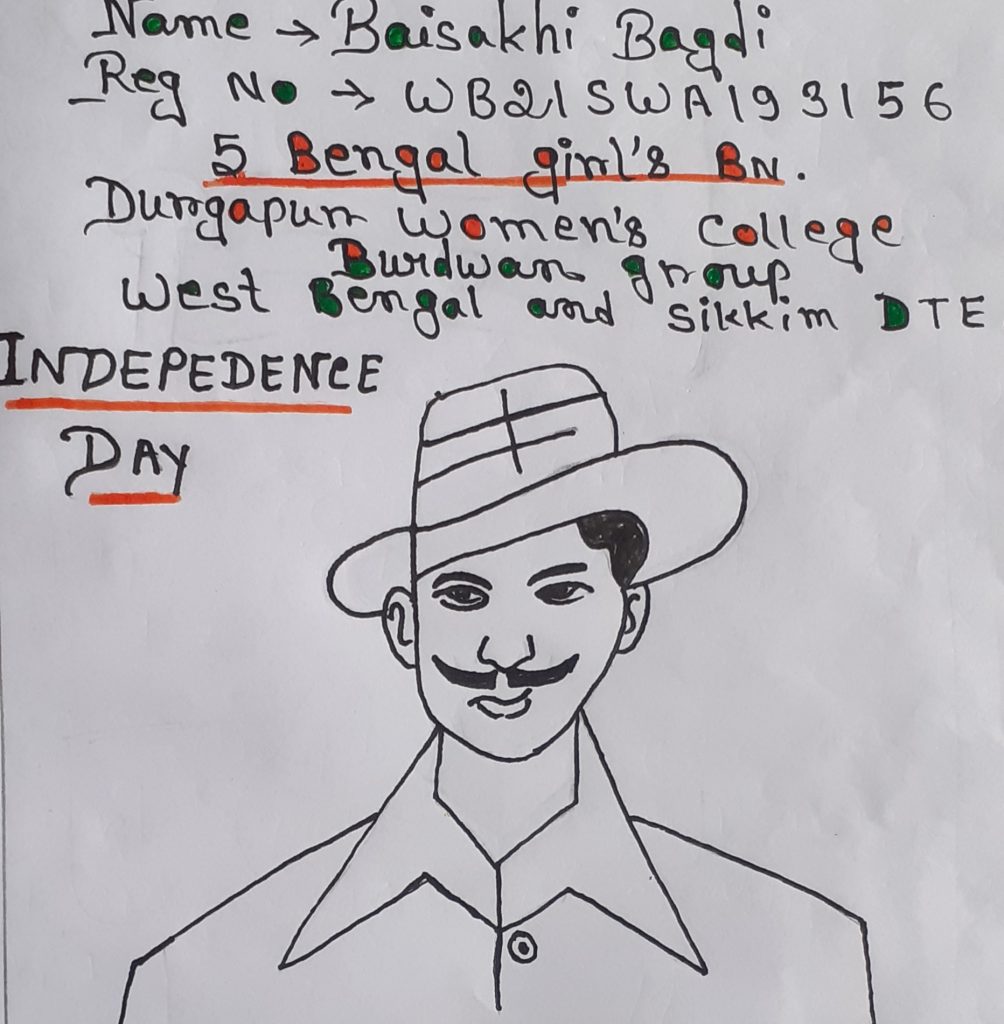 Name → Baisakhi Bagdi
Reg No → WB21SWA193156
5 Bengal girl's BN.
Durgapur women's college
Burdwan group
West Bengal and sikkim DTE
INDEPEDENCE
DAY